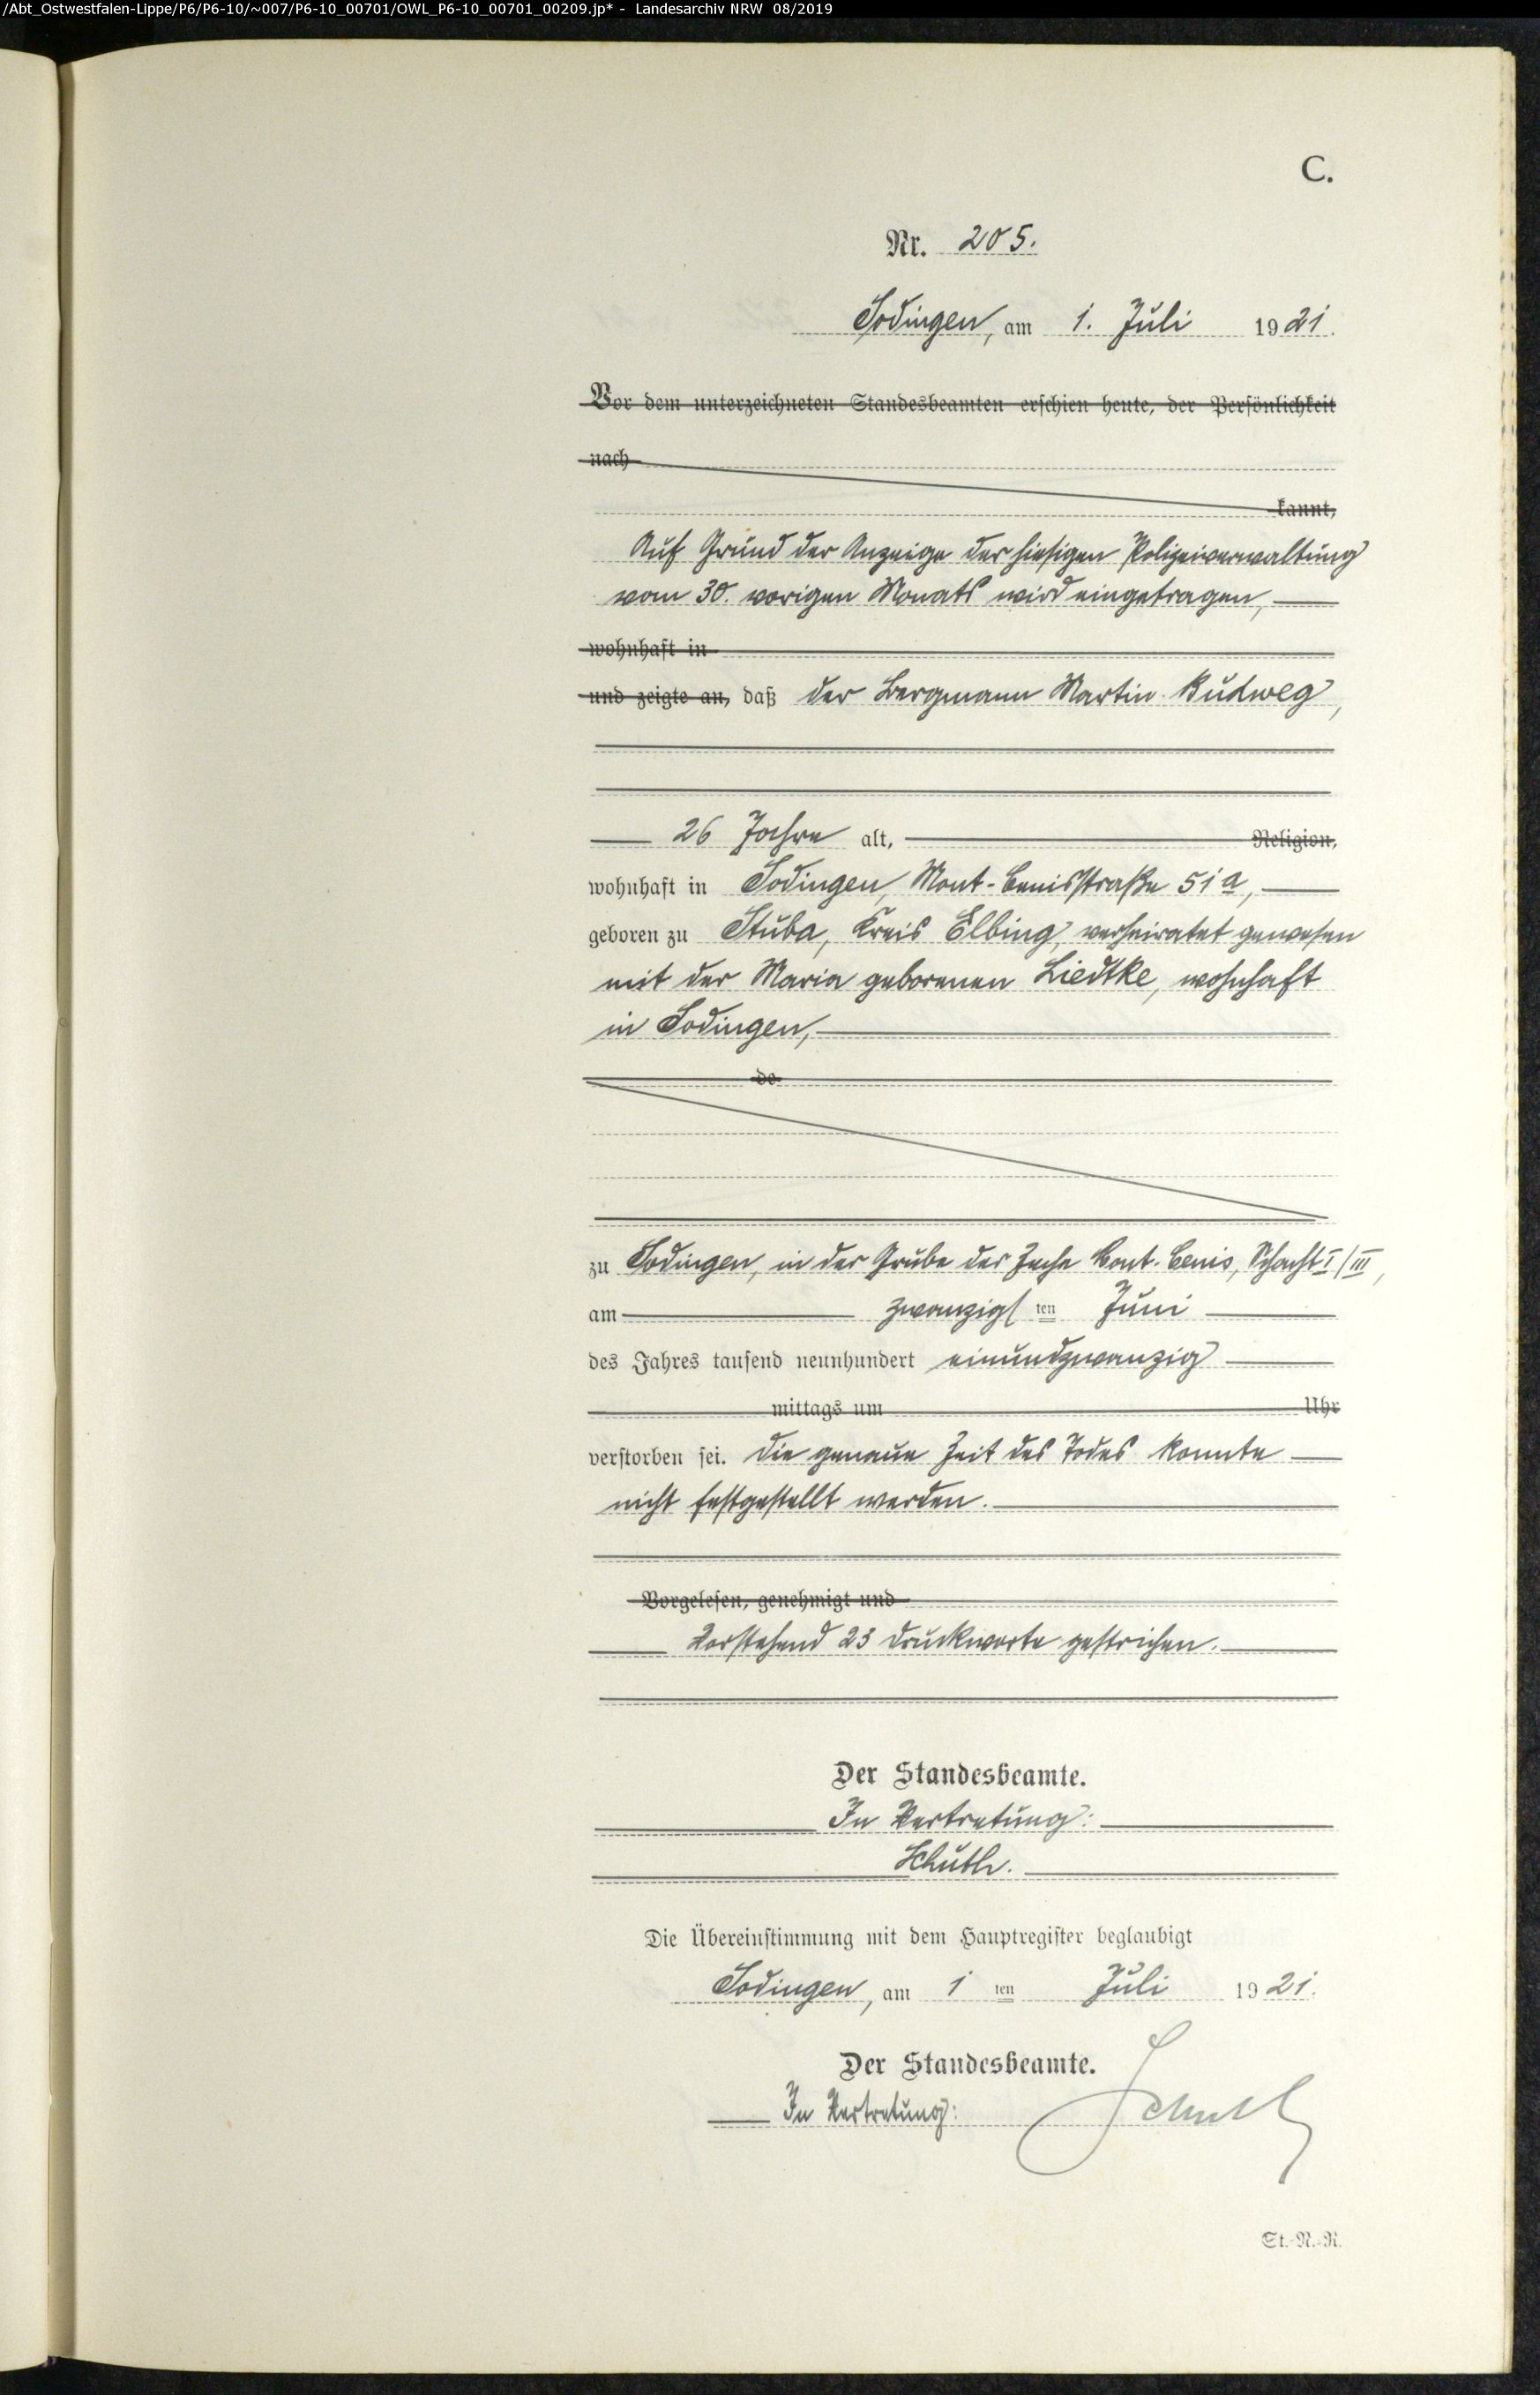 /Abt_Ostwestfalen-Lippe/P6/P6-10/~007/P6-10_00701/OWL_P6-10_00701_00209.jp* - Landesarchiv NRW 08/2019
C.
Nr. 205.
Sodingen, am 1. Juli 1921.
Vor dem unterzeichneten Standesbeamten erschien heute, der Persönlichkeit
nach
kannt,
Auf Grund der Anzeige der hiesigen Polizeiverwaltung
vom 30. vorigen Monats wird eingetragen,
wohnhaft in
und zeigte an, daß der Bergmann Martin Kudweg,
26 Jahre alt, Religion,
wohnhaft in Sodingen, Mont-Cenisstraße 51a,
geboren zu Stuba, Kreis Elbing, verheiratet gewesen
mit der Maria geborenen Liedtke, wohnhaft
in Sodingen,
de
zu Sodingen, in der Grube der Zeche Mont-Cenis, Schacht I/III,
am zwanzigsten Juni
des Jahres tausend neunhundert einundzwanzig
mittags um Uhr
verstorben sei. Die genaue Zeit des Todes konnte
nicht festgestellt werden.
Vorgelesen, genehmigt und
Vorstehend 23 Druckworte gestrichen.
Der Standesbeamte.
In Vertretung:
Schuth.
Die Übereinstimmung mit dem Hauptregister beglaubigt
Sodingen, am 1 ten Juli 1921.
Der Standesbeamte.
In Vertretung: Schuth
St.-N.-R.